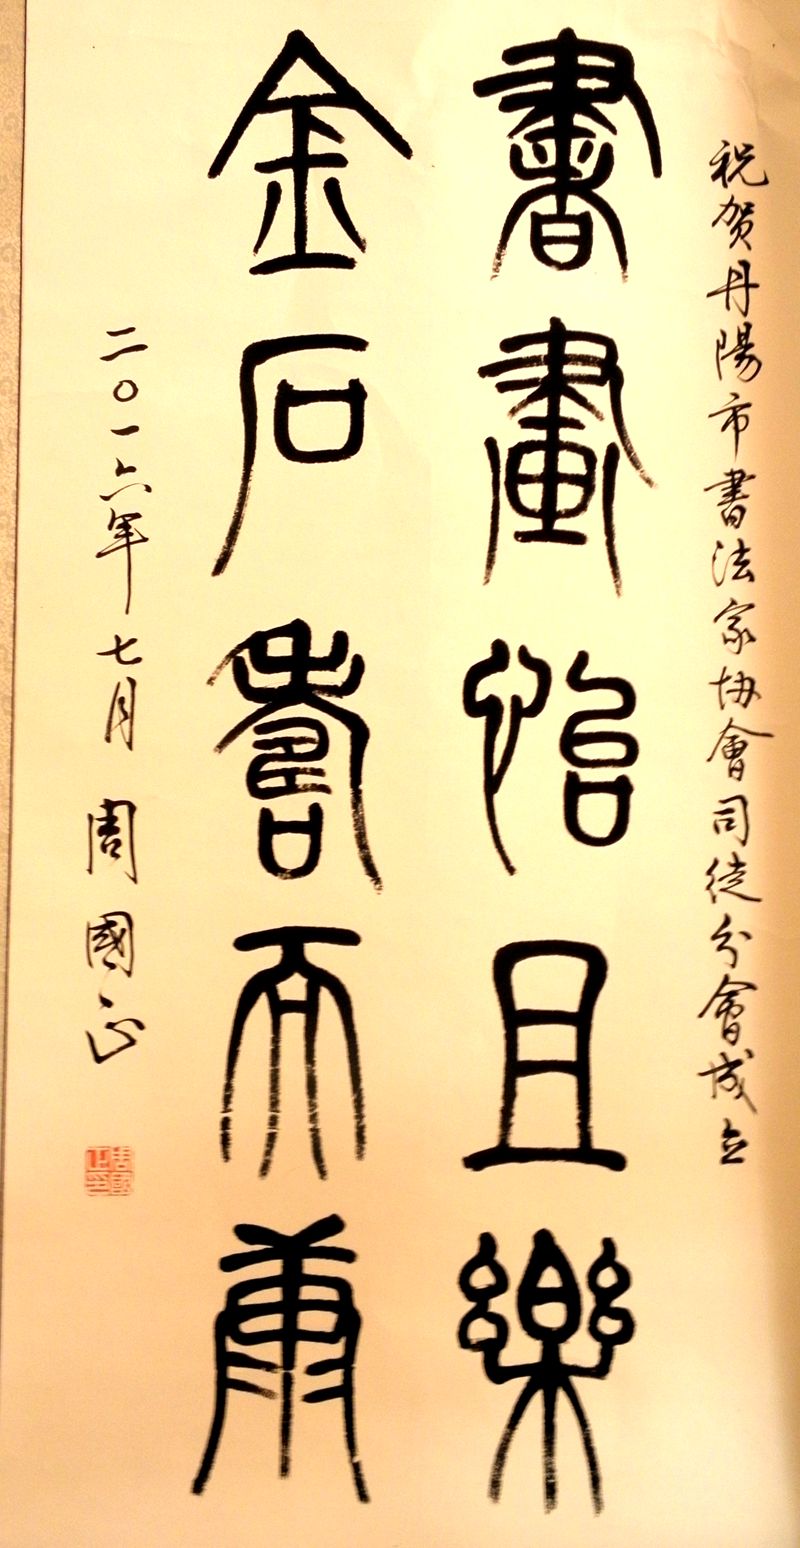 祝贺丹陽市書法家协會司徒分會成立
書畫怡且樂
金石壽而康
二〇一六年七月 周國正
周國正印